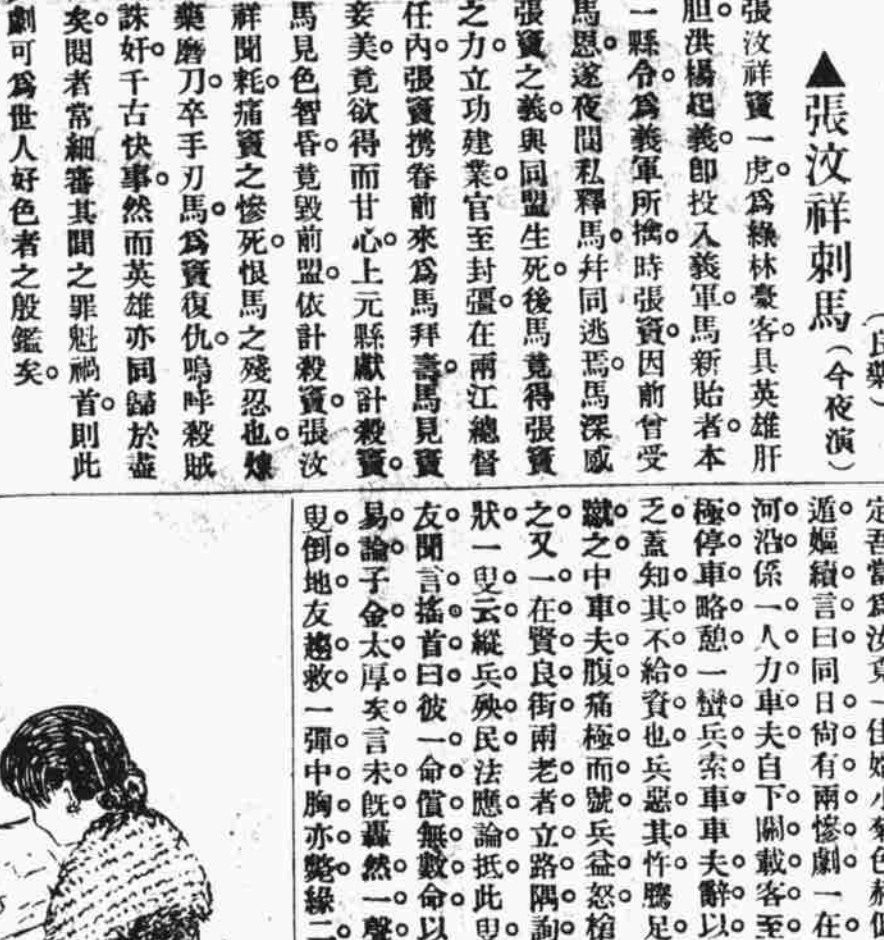 （良藥）
▲張汶祥刺馬（今夜演）
張汶祥竇一虎。爲綠林豪客。具英雄肝
胆。洪楊起義。卽投入義軍。馬新貽者。本
一縣令。爲義軍所擒。時張竇。因前曾受
馬恩。遂夜間私釋馬。幷同逃焉。馬深感
張竇之義。與同盟生死。後馬竟得張竇
之力。立功建業。官至封疆。在兩江總督
任內。張竇携眷前來。爲馬拜壽。馬見竇
妾美。竟欲得而甘心。上元縣獻計殺竇。
馬見色智昏。竟毀前盟。依計殺竇。張汶
祥聞耗。痛竇之慘死。恨馬之殘忍也。煉
藥磨刀。卒手刃馬。爲竇復仇。嗚呼殺賊
誅奸。千古快事。然而英雄亦同歸於盡
矣。閱者常細審其間之罪魁禍首。則此
劇可爲世人好色者之殷鑑矣。
定吾當爲汝覓一佳婿
遁。嫗續言曰。同日尙有兩慘劇。一在
河沿。係一人力車夫。自下關載客至
極。停車略憩。一蠻兵索車。車夫辭以
乏。蓋知其不給資也。兵惡其忤。騰足
蹴之。中車夫腹。痛極而號。兵益怒。槍
之。又一在賢良街。兩老者立路隅。詢
狀。一叟云。縱兵殃民。法應論抵。此叟
友聞言。搖首曰。彼一命償無數命。以
易論。子金太厚矣。言未旣。轟然一聲。
叟倒地。友趨救。一彈中胸。亦斃。緣二